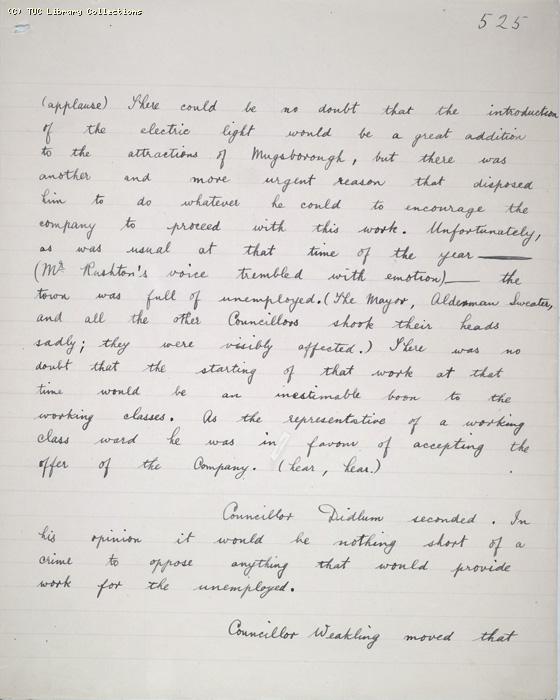 (c) TUC Library Collections
525
(applause) There could be no doubt that the introduction
of the electric light would be a great addition
to the attractions of Mugsborough, but there was
another and more urgent reason that disposed
him to do whatever he could to encourage the
company to proceed with this work. Unfortunately,
as was usual at that time of the year ——
(Mr Rushton's voice trembled with emotion) — the
town was full of unemployed. (The Mayor, Alderman Sweater,
and all the other Councillors shook their heads
sadly; they were visibly affected.) There was no
doubt that the starting of that work at that
time would be an inestimable boon to the
working classes. As the representative of a working
class ward he was in favour of accepting the
offer of the Company. (hear, hear.)
Councillor Didlum seconded. In
his opinion it would be nothing short of a
crime to oppose anything that would provide
work for the unemployed.
Councillor Weakling moved that